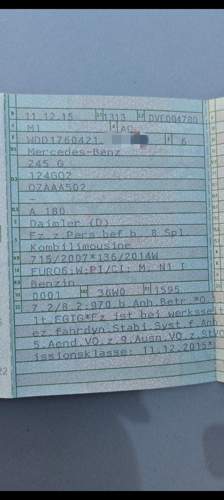 11.12.15 1313 DVE004780
M1 AC
WDD1760421 6
Mercedes-Benz
245 G
124G0Z
OZAAA502
-
A 180
Daimler (D)
Fz.z.Pers.bef.b. 8 Spl
Kombilimousine
715/2007*136/2014W
EURO6;W;PI/CI; M, N1 I
Benzin
0001 36W0 1595
7.2/8.2:970 b.Anh.Betr.*0.
lt.EGTG*Fz ist bei werksseit
ez.fahrdyn.Stabi.Syst.f.Anh
5.Aend.VO.z.9.Ausn.VO.z.StVO
issionsklasse: 11.12.2015*